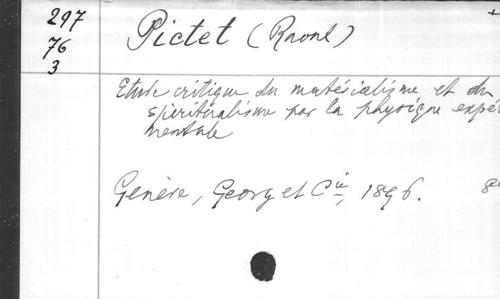 297
76
3
Pictet (Raoul)
Etude critique du matérialisme et du
spiritualisme par la physique expéri
mentale
Genève, Georg et Cie, 1896.